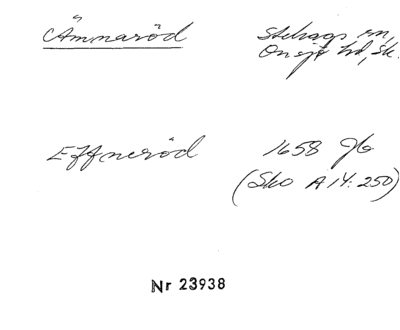 Ämnaröd Stehags sn,
Onsjö hd, Sk.
Effneröd 1658 Jb
(Sko A 14: 250)
Nr 23938